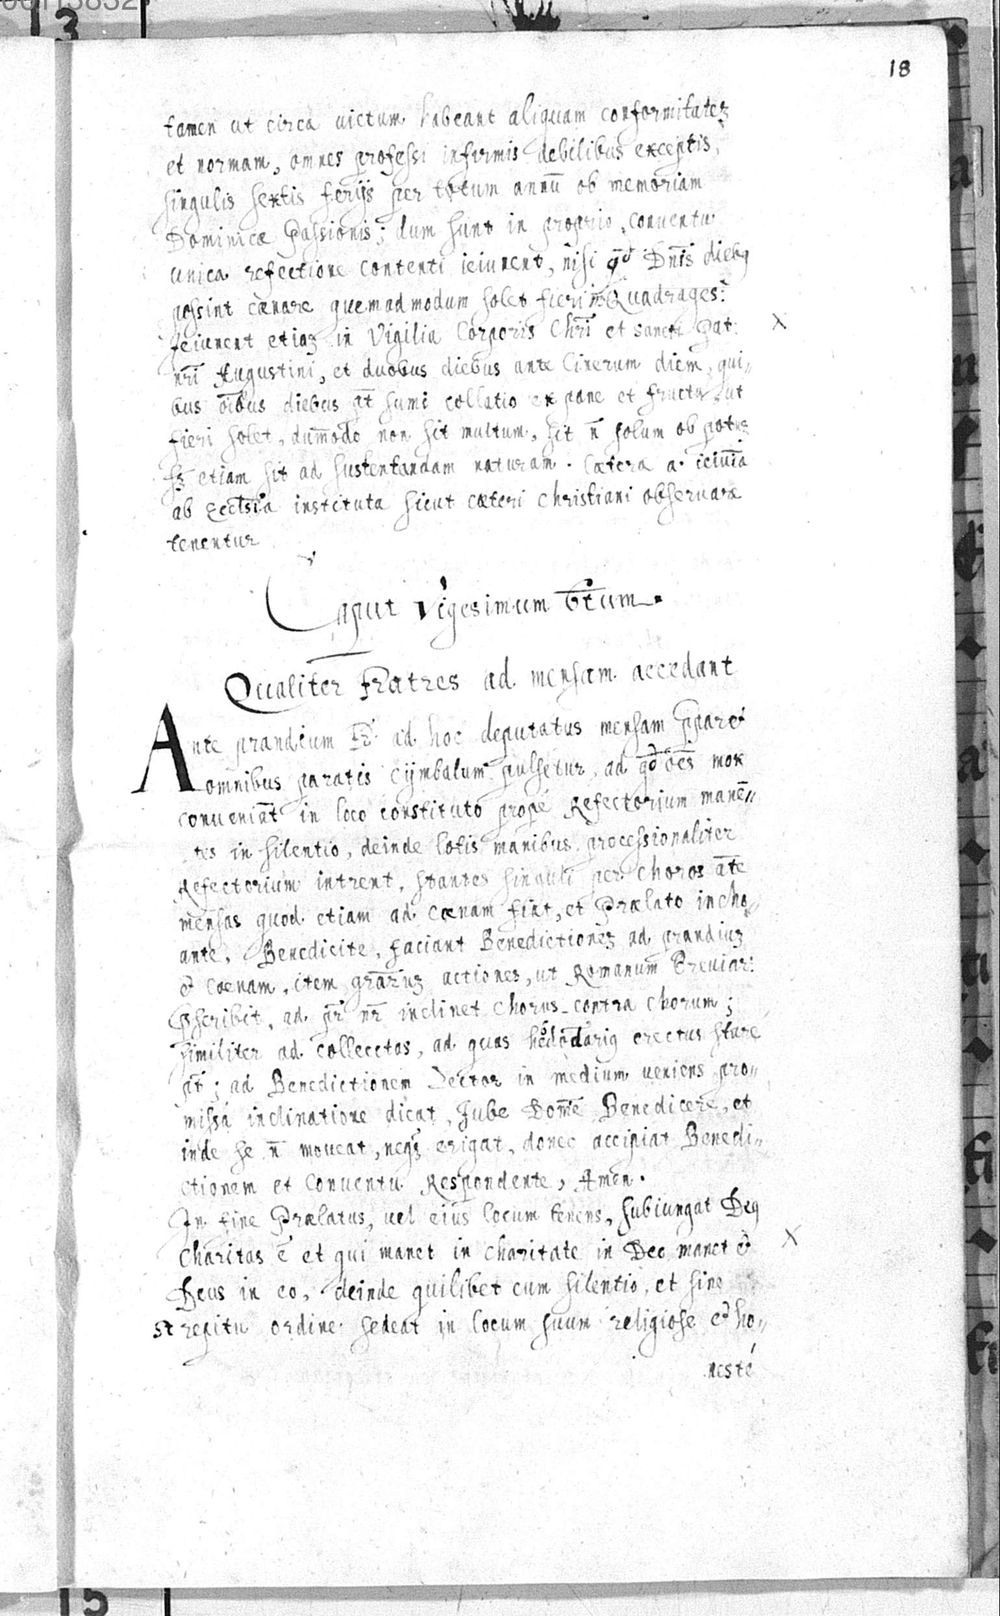 18
tamen ut circa victum habeant aliquam conformitatez
et normam, omnes professi infirmis debilibus exceptis,
singulis sextis ferijs per totum annū ob memoriam
Dominicæ Passionis; dum sunt in proprio, conuentu
unica refectione contenti ieiunent, nisi qd Dn̄is diebq
possint cænare quemadmodum solet fieri in Quadrages:
Jeiunent etiaz in Vigilia Corporis Chrī et Sancti Pat:
nr̄i Augustini, et duobus diebus ante Cinerum diem, qui„
bus oībus diebus pt̄ sumi collatio ex pane et fructu, ut
fieri solet, dum̄odo non sit multum, sit n̄ solum ob potuz
sz etiam sit ad sustentandam naturam. Cætera a. ieiunīa
ab Eccłsia instituta sicut cæteri Christiani obseruare
tenentur
Caput vigesimum 6tum.
Qualiter Fratres ad mensam accedant
Ante prandium Fr̄ ad hoc deputatus mensam pparet
omnibus paratis Cymbalum pulsetur, ad qd oēs mox
conueniāt in loco constituto propè Refectorium manē„
tes in silentio, deinde lotis manibus processionaliter
Refectorium intrent, stantes singuli per choros āte
mensas quod etiam ad cœnam fiat, et Prælato incho„
ante, Benedicite, faciant Benedictionez ad prandiuz
& coenam, item grāruz actiones, ut Romanum Breuiar:
pscribit, ad pr̄ nr̄ inclinet Chorus contra Chorum;
similiter ad collectas, ad quas hebdodarig erectus stare
pt̄; ad Benedictionem Lector in medium veniens pro„
missa inclinatione dicat, Jube Domē Benedicere, et
inde se n̄ moueat, neqz erigat, donec accipiat Benedi„
ctionem et Conuentu Respondente, Amen.
In fine Prælatus, uel eius locum tenens, subiungat Deq
Charitas ē et qui manet in charitate in Deo manet &
Deus in eo, deinde quilibet cum silentio, et sine
strepitu ordine sedeat in locum suum religiose & ho„
nestè